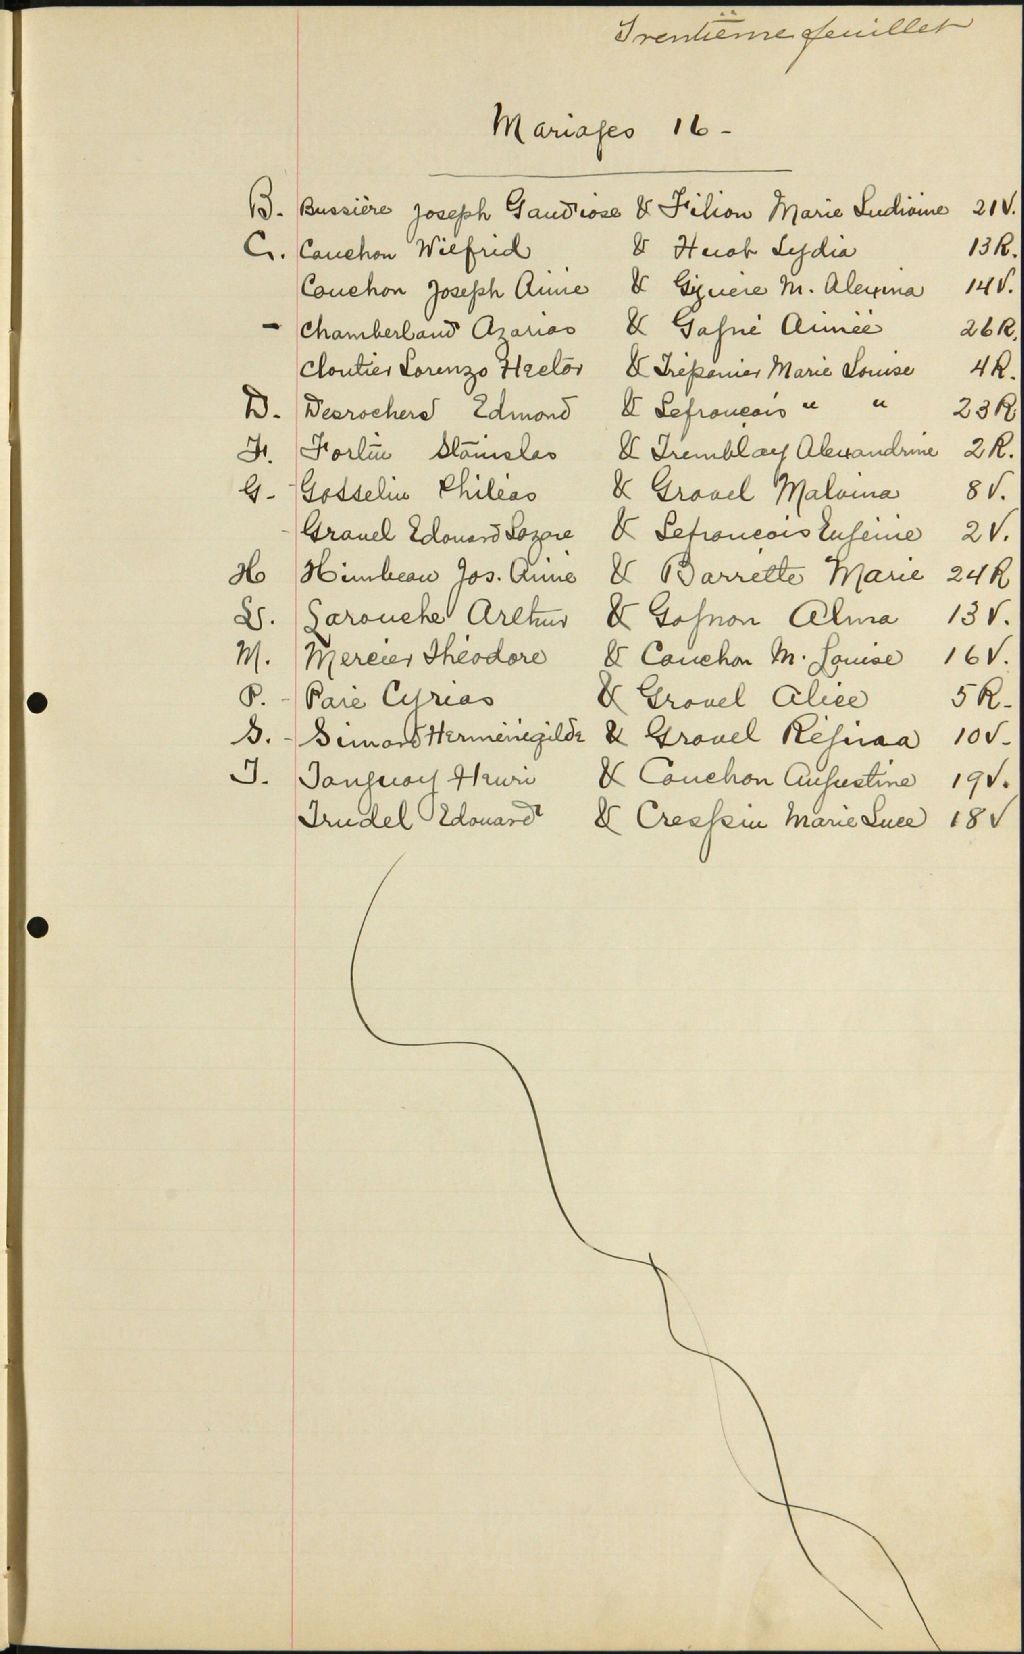 Trentième feuillet
Mariages 16 -
B. Bussière Joseph Gaudiose & Filion Marie Ludivine 21 V.
C. Cauchon Wilfrid & Huot Lydia 13 R.
Cauchon Joseph Aimé & Giguère M. Alexina 14 V.
- Chamberland Azarias & Gagné Aimée 26 R.
Cloutier Lorenzo Hector & Trépanier Marie Louise 4 R.
D. Desrochers Edmond & Lefrancois " " 23 R
F. Fortin Stanislas & Tremblay Alexandrine 2 R.
G - Gosselin Philéas & Gravel Malvina 8 V.
- Gravel Edouard Lazare & Lefrancois Eugénie 2 V.
H Himbeau Jos. Aimé & Barrette Marie 24 R
L. Larouche Arthur & Gagnon Alma 13 V.
M. Mercier Théodore & Cauchon M. Louise 16 V.
P. - Paré Cyrias & Gravel Alice 5 R -
S. - Simard Herménégilde & Gravel Régina 10 V -
T. Tanguay Henri & Cauchon Augustine 19 V.
Trudel Edouard & Crespin Marie Luce 18 V